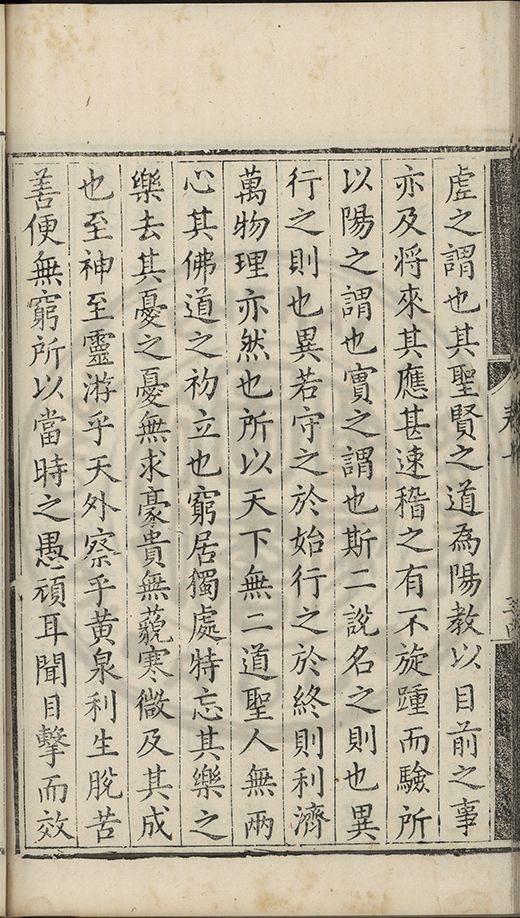 虗之謂也其聖賢之道為陽教以目前之事
亦及将來其應甚速稽之有不旋踵而驗所
以陽之謂也實之謂也斯二說名之則也異
行之則也異若守之於始行之於終則利濟
萬物理亦然也所以天下無二道聖人無兩
心其佛道之初立也窮居獨處特忘其樂之
樂去其憂之憂無求豪貴無藐寒微及其成
也至神至靈游乎天外察乎黃泉利生脫苦
善便無窮所以當時之愚頑耳聞目擊而效